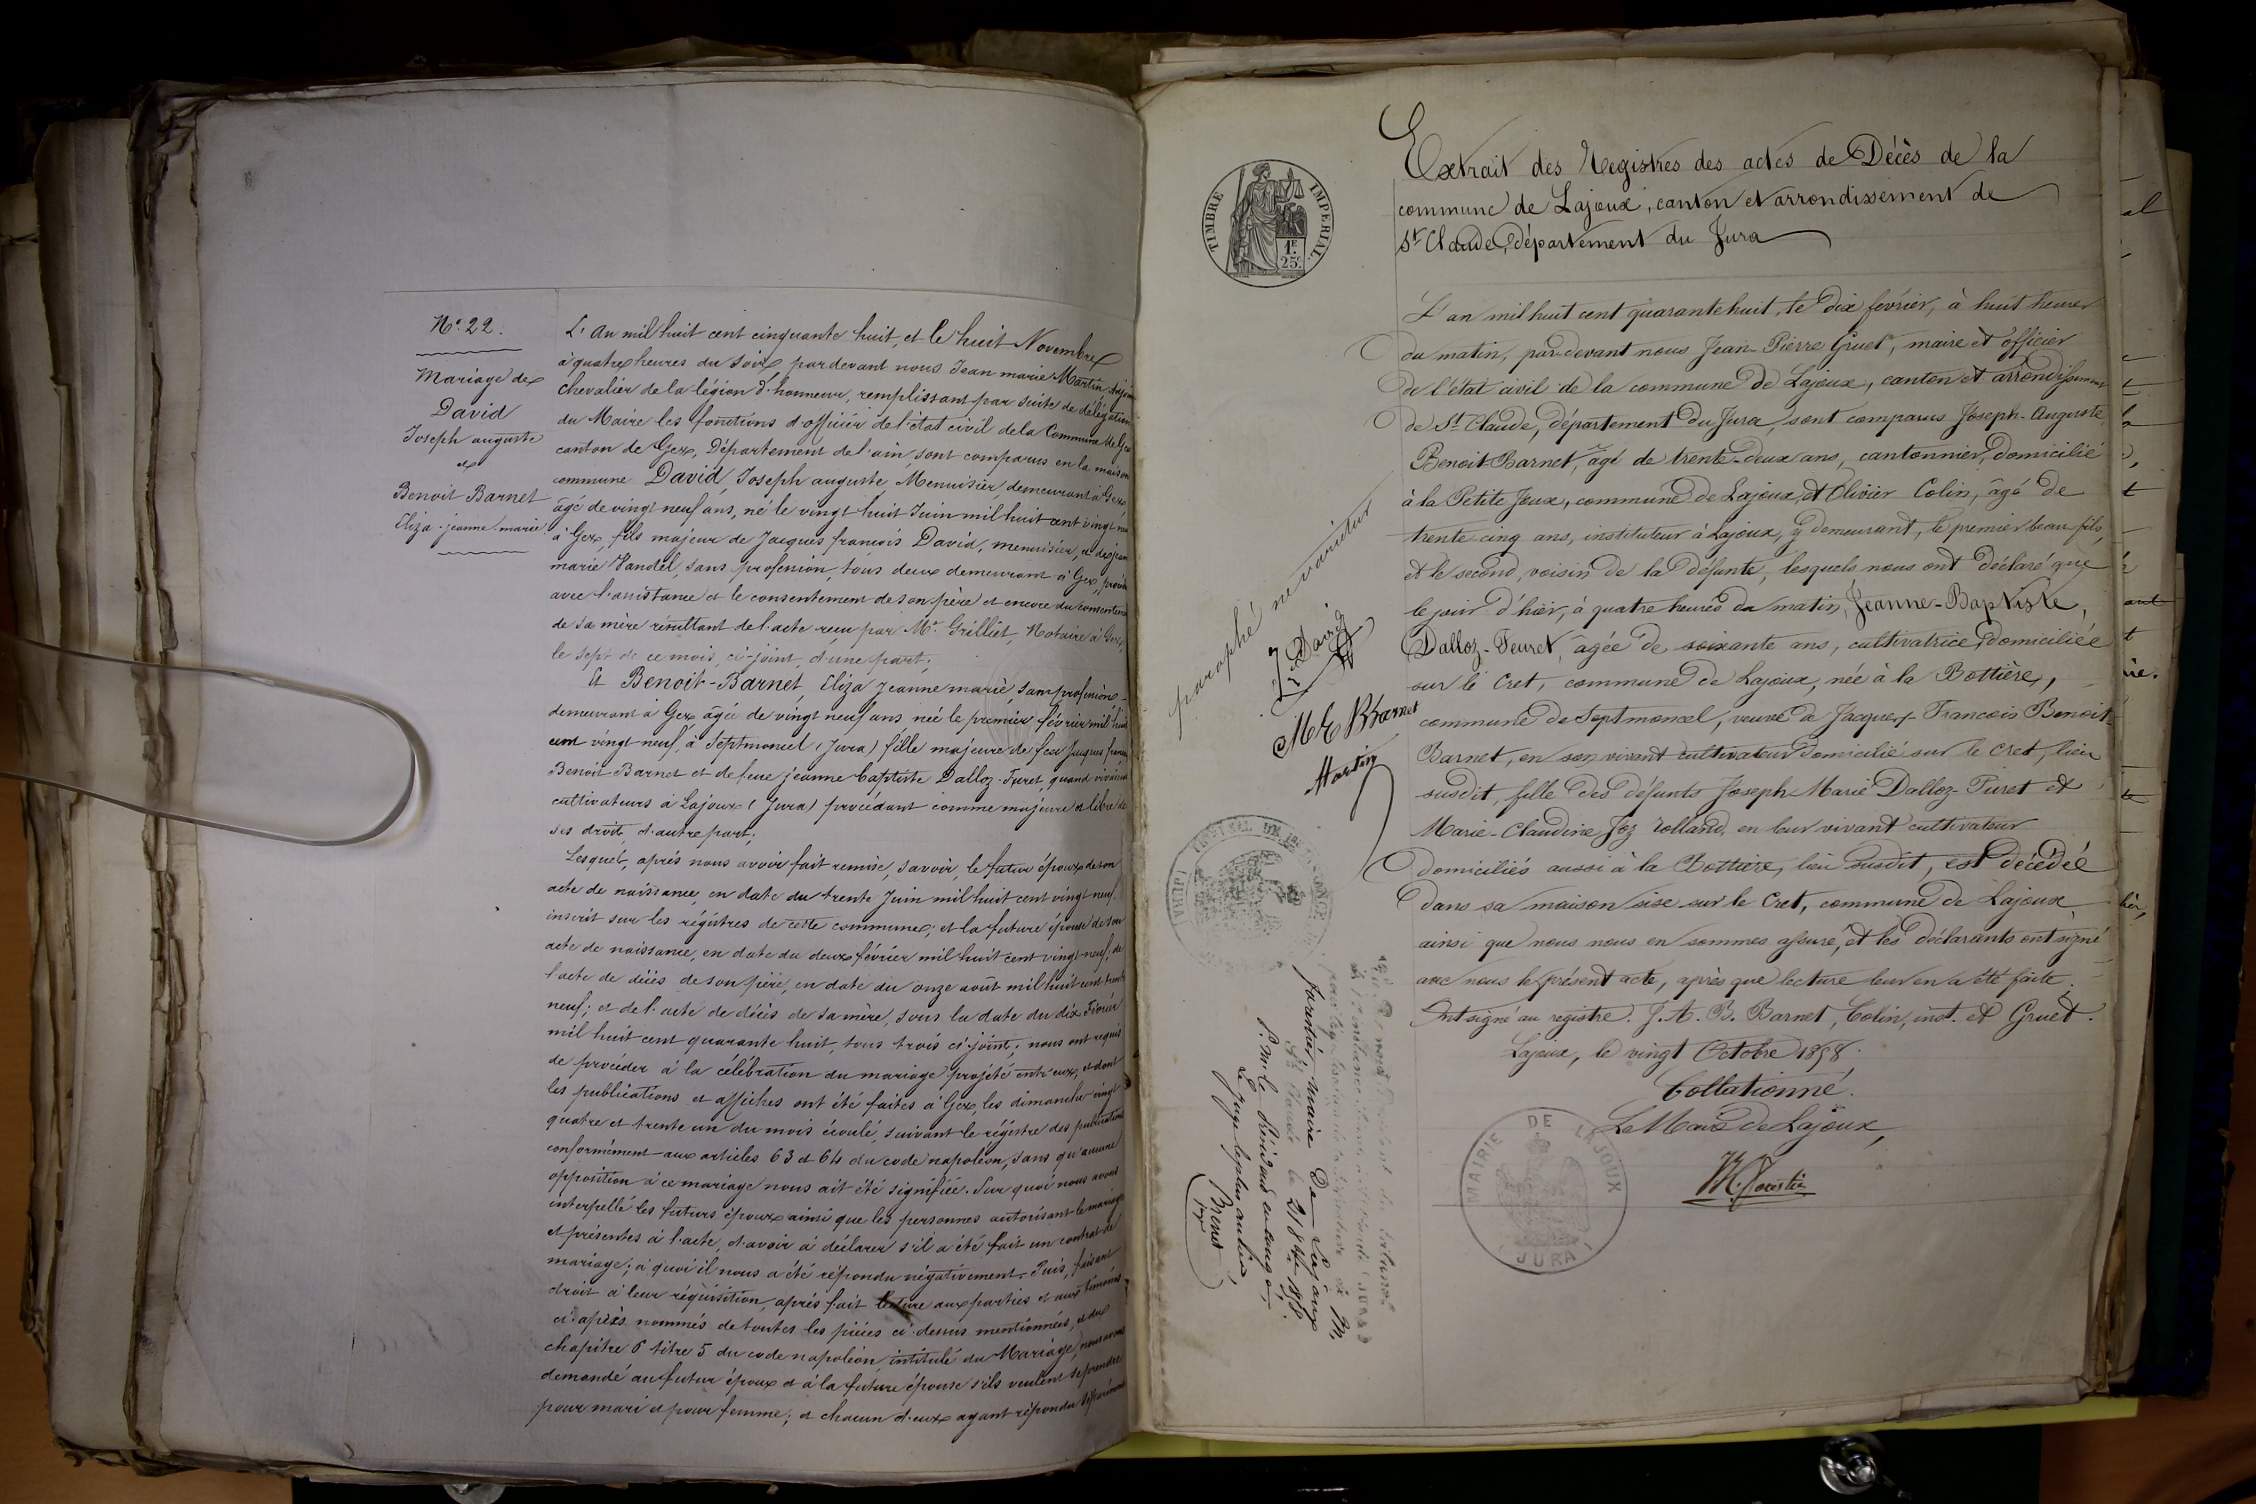 N.° 22.
Mariage de
David
Joseph auguste
et
Benoit Barnet
Eliza jeanne marie
L'an mil huit cent cinquante huit, et le huit Novembre
à quatre heures du soir par devant nous Jean marie Martin Adjoint
chevalier de la légion d'honneur, remplissant par suite de délégation
du Maire les fonctions d'officier de l'état civil de la Commune de Gex
canton de Gex, Département de l'ain, sont comparus en la maison
commune David, Joseph auguste, Menuisier, demeurant à Gex
âgé de vingt neuf ans, né le vingt huit Juin mil huit cent vingt neuf
à Gex, fils majeur de Jacques françois David, menuisier, et de jeanne
marie Vandel, sans profession, tous deux demeurant à Gex, procédant
avec l'assistance et le consentement de son père et encore du consentement
de sa mère résultant de l'acte reçu par Me Grilliet, Notaire à Gex,
le sept de ce mois, ci-joint, d'une part;
Et Benoit-Barnet, Eliza Jeanne marie, sans profession
demeurant à Gex âgée de vingt neuf ans née le premier février mil huit
cent vingt neuf, à Septmoncel (Jura) fille majeure de feu Jacques françois
Benoit Barnet et de feue jeanne baptiste Dalloz-Furet, quand vivaient
cultivateurs à Lajoux (Jura) procédant comme majeure et libre de
ses droits, d'autre part;
Lesquels, après nous avoir fait remise, savoir, le futur époux de son
acte de naissance, en date du trente Juin mil huit cent vingt neuf,
inscrit sur les régistres de cette commune; et la future épouse de son
acte de naissance, en date du deux février mil huit cent vingt neuf, de
l'acte de décès de son père, en date du onze août mil huit cent trente
neuf; et de l'acte de décès de sa mère, sous la date du dix Février
mil huit cent quarante huit, tous trois ci-joints; nous ont requis
de procéder à la célébration du mariage projeté entr'eux, et dont
les publications et affiches ont été faites à Gex, les dimanche vingt
quatre et trente un du mois écoulé, suivant le régistre des publications
conformément aux articles 63 et 64 du code napoléon, sans qu'aucune
opposition à ce mariage nous ait été signifiée. Sur quoi nous avons
interpellé les futurs époux ainsi que les personnes autorisant le mariage
et présentes à l'acte, d'avoir à déclarer s'il a été fait un contrat de
mariage; à quoi il nous a été répondu négativement. Puis, faisant
droit à leur réquisition, après fait lecture aux parties et aux témoins
ci-après nommés de toutes les pièces ci-dessus mentionnées, et du
chapitre 6 titre 5 du code napoléon, intitulé du Mariage, nous avons
demandé au futur époux et à la future épouse s'ils veulent se prendre
pour mari et pour femme; et chacun d'eux ayant répondu séparément
TIMBRE IMPERIAL
1F
25c
Extrait des Registres des actes de Décès de la
commune de Lajoux, canton et arrondissement de
St Claude, département du Jura
L'an mil huit cent quarante huit, le dix février, à huit heures
du matin, par-devant nous Jean-Pierre Gruet, maire et officier
de l'état civil de la commune de Lajoux, canton et arrondissement
de St Claude, département du Jura, sont comparus Joseph-Auguste
Benoit-Barnet, âgé de trente-deux ans, cantonnier, domicilié
à la Petite Joux, commune de Lajoux, et Olivier Colin, âgé de
trente cinq ans, instituteur à Lajoux, y demeurant, le premier beau fils,
et le second, voisin de la défunte, lesquels nous ont déclaré que
le jour d'hier, à quatre heures du matin, Jeanne-Baptiste,
Dalloz-Feuret, âgée de soixante ans, cultivatrice, domiciliée
sur le Cret, commune de Lajoux, née à la Bottière,
commune de Septmoncel, veuve de Jacques-François Benoit-
Barnet, en son vivant cultivateur domicilié sur le Cret, lieu
susdit, fille des défunts Joseph-Marie Dalloz-Furet et
Marie-Claudine Joz rolland, en leur vivant cultivateur
domiciliés aussi à la Bottière, lieu susdit, est décédée
dans sa maison sise sur le Cret, commune de Lajoux
ainsi que nous nous en sommes assuré, et les déclarants ont signé
avec nous le présent acte, après que lecture leur en a été faite.
Ont signé au registre: J. A. B. Barnet, Colin, inst. et Gruet.
Lajoux, le vingt Octobre 1858.
Collationné.
Le Maire de Lajoux,
MAIRIE DE LAJOUX
(JURA)
paraphé ne varietur
David
M E B Barnet
Martin
maire de Lajoux
St Claude le 21 8bre 1858.
P. mr le Président en congé,
Le Juge le plus ancien,
Brenet
juge